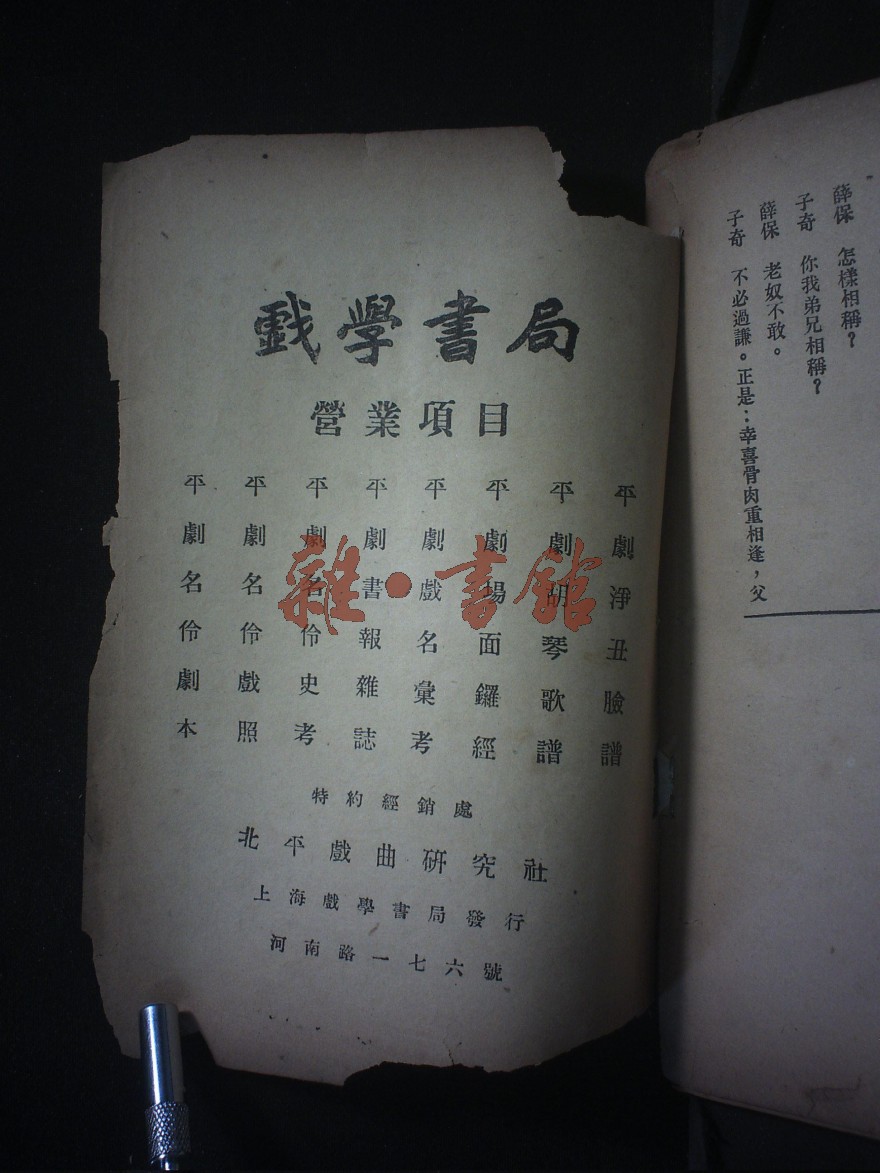 薛保　怎樣相稱？
子奇　你我弟兄相稱？
薛保　老奴不敢。
子奇　不必過謙。正是：幸喜骨肉重相逢，父
戲學書局
營業項目
平劇淨丑臉譜
平劇胡琴歌譜
平劇場面鑼經
平劇戲名彙考
平劇書報雜誌
平劇名伶史考
平劇名伶戲照
平劇名伶劇本
特約經銷處
北平戲曲研究社
上海戲學書局發行
河南路一七六號
雜·書館